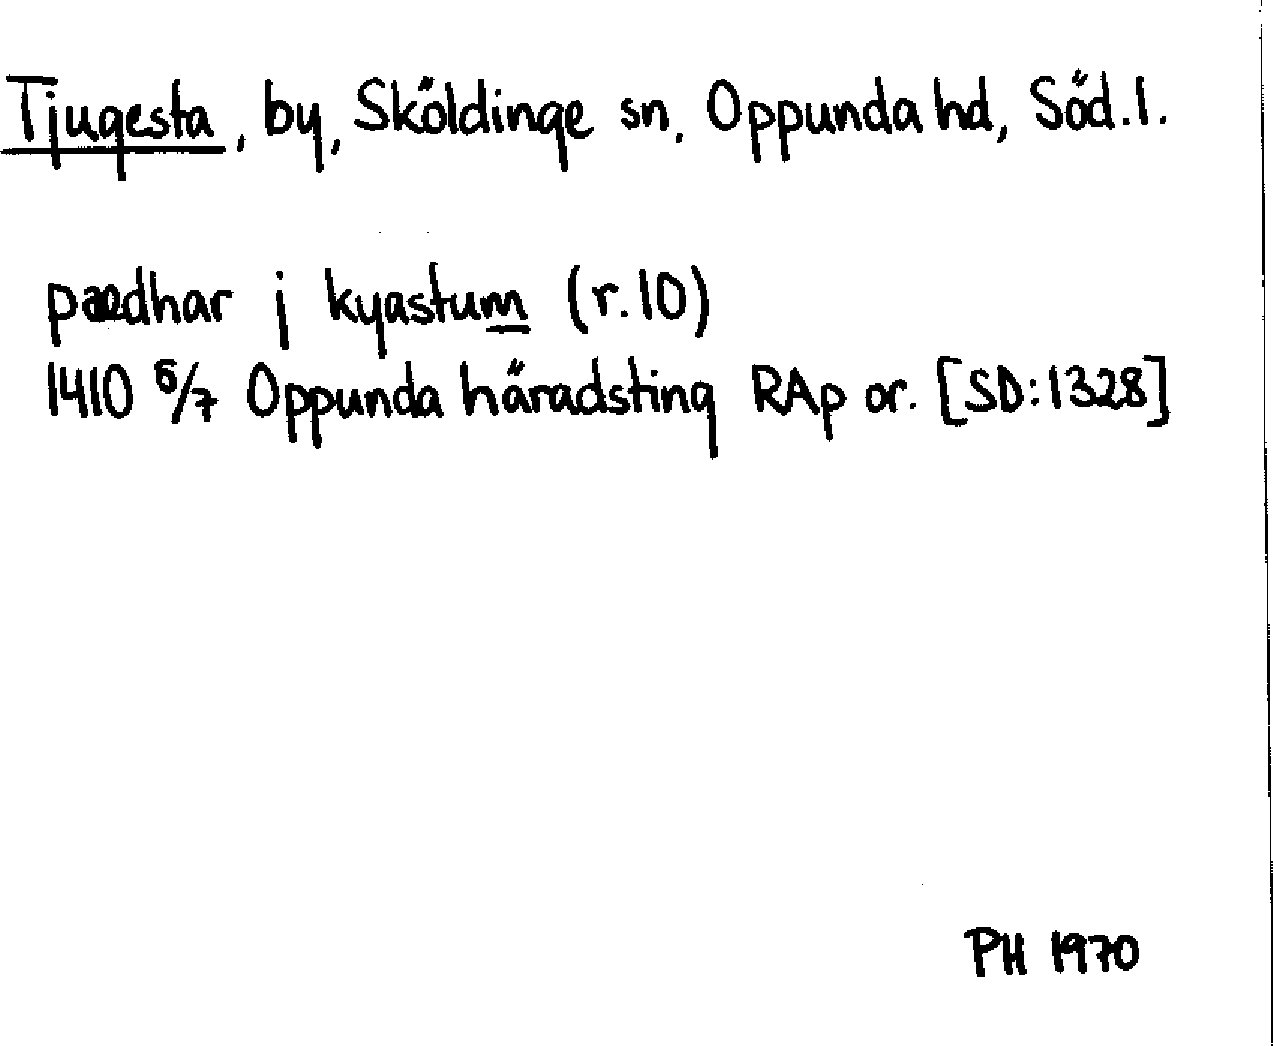 Tjugesta, by, Sköldinge sn, Oppunda hd, Söd.l.
pædhar j kyastum (r.10)
1410 6/7 Oppunda häradsting RAp or. [SD:1328]
PH 1970